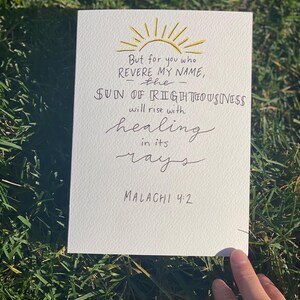 But for you who
REVERE MY NAME,
the
SUN OF RIGHTEOUSNESS
will rise with
healing
in its
rays
MALACHI 4:2